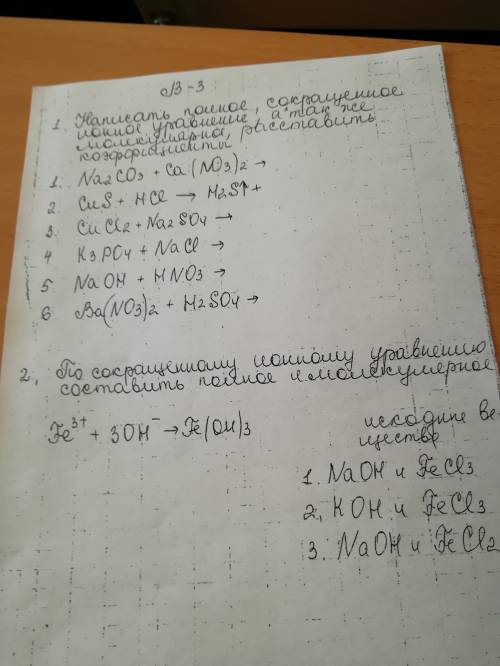 В-3
1. Написать полное, сокращенное
ионное уравнение а так же
молекулярна, расставить
коэффициенты
1. Na2CO3 + Ca(NO3)2 →
2 CuS + HCl → H2S↑ +
3. CuCl2 + Na2SO4 →
4 K3PO4 + NaCl →
5 NaOH + HNO3 →
6 Ba(NO3)2 + H2SO4 →
2, По сокращенному ионному уравнению
составить полное и молекулярное
Fe³⁺ + 3OH⁻ → Fe(OH)3
исходные ве-
щества
1. NaOH и FeCl3
2, KOH и FeCl3
3. NaOH и FeCl2